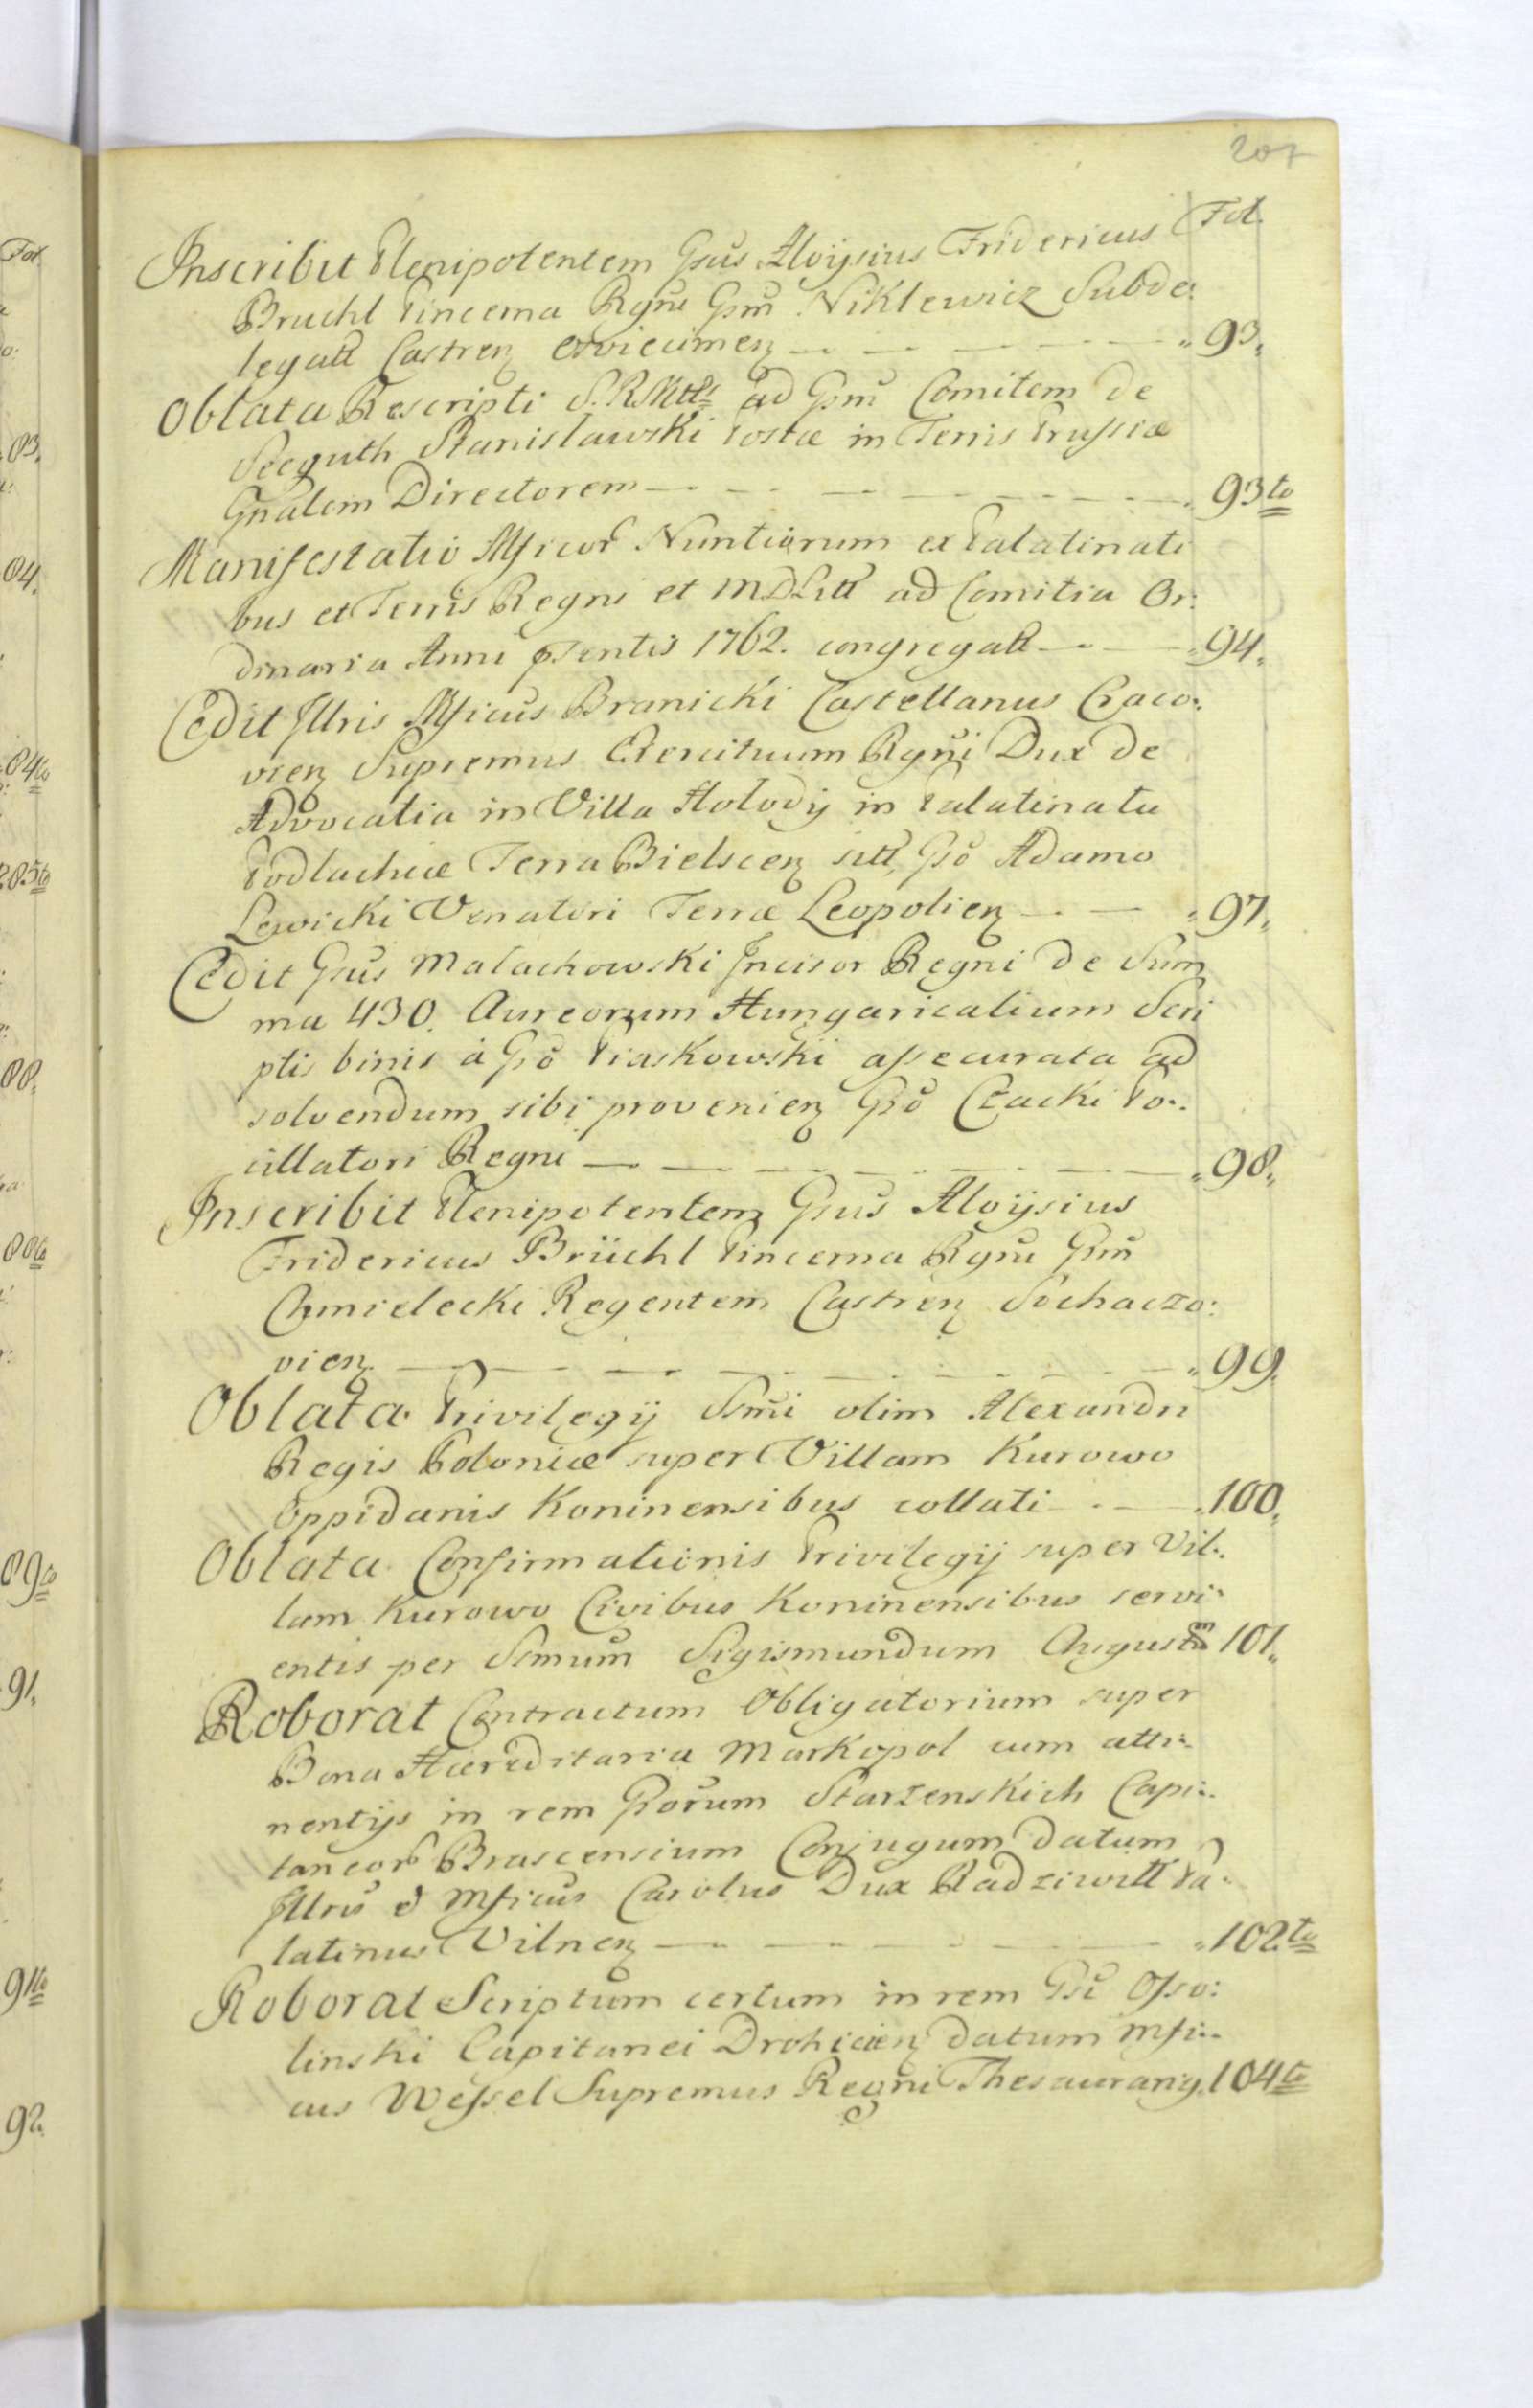 207
Fol.
Inscribit Plenipotentem Gsus Aloijsius Fridericus
Bruchl Pincerna Rgni Gsm Niklewicz Subde:
legatt Castren Osviecimen 93.
Oblata Rescripti S.R.Mttis ad Gsm Comitem de
Seeguth Stanislawski Postæ in Terris Prussiæ
Gnalem Directorem 93to
Manifestatio Mficor Nuntiorum ex Palatinati
bus et Terris Regni et M.D.Litt ad Comitia Or:
dinaria Anni psentis 1762. congregatt 94.
Cedit Illris Mficus Branicki Castellanus Craco:
vien Supremus Exercituum Rgni Dux de
Advocatia in Villa Hołody in Palatinatu
Podlachiæ Terra Bielscen sitt Gso Adamo
Lewicki Venatori Terræ Leopolien 97.
Cedit Gsus Małachowski Incisor Regni de Sum
ma 430. Aureorum Hungaricalium Scri
ptis binis à Gso Piaskowski assecurata ad
solvendum sibi provenien Gso Czacki Po:
cillatori Regni 98.
Inscribit Plenipotentem Gsus Aloijsius
Fridericus Brüchl Pincerna Rgni Gsm
Chmielecki Regentem Castren Sochaczo:
vien 99.
Oblata Privilegij Ssmi olim Alexandri
Regis Poloniæ super Villam Kurowo
Oppidanis Koninensibus collati 100.
Oblata Confirmationis Privilegij super Vil:
lam Kurowo Civibus Koninensibus servi:
entis per Ssmum Sigismundum Augustm 101.
Roborat Contractum Obligatorium super
Bona Hæreditaria Markopol cum atti:
nentijs in rem Gsorum Starzenskich Capi:
taneor Brascensium Conjugum datum
Illris et Mficus Carolus Dux Radziwiłł Pa:
latinus Vilnen 102to
Roborat Scriptum certum in rem Gsi Osso:
linski Capitanei Drohicien datum Mfi:
cus Wessel Supremus Regni Thesaurarig 104to